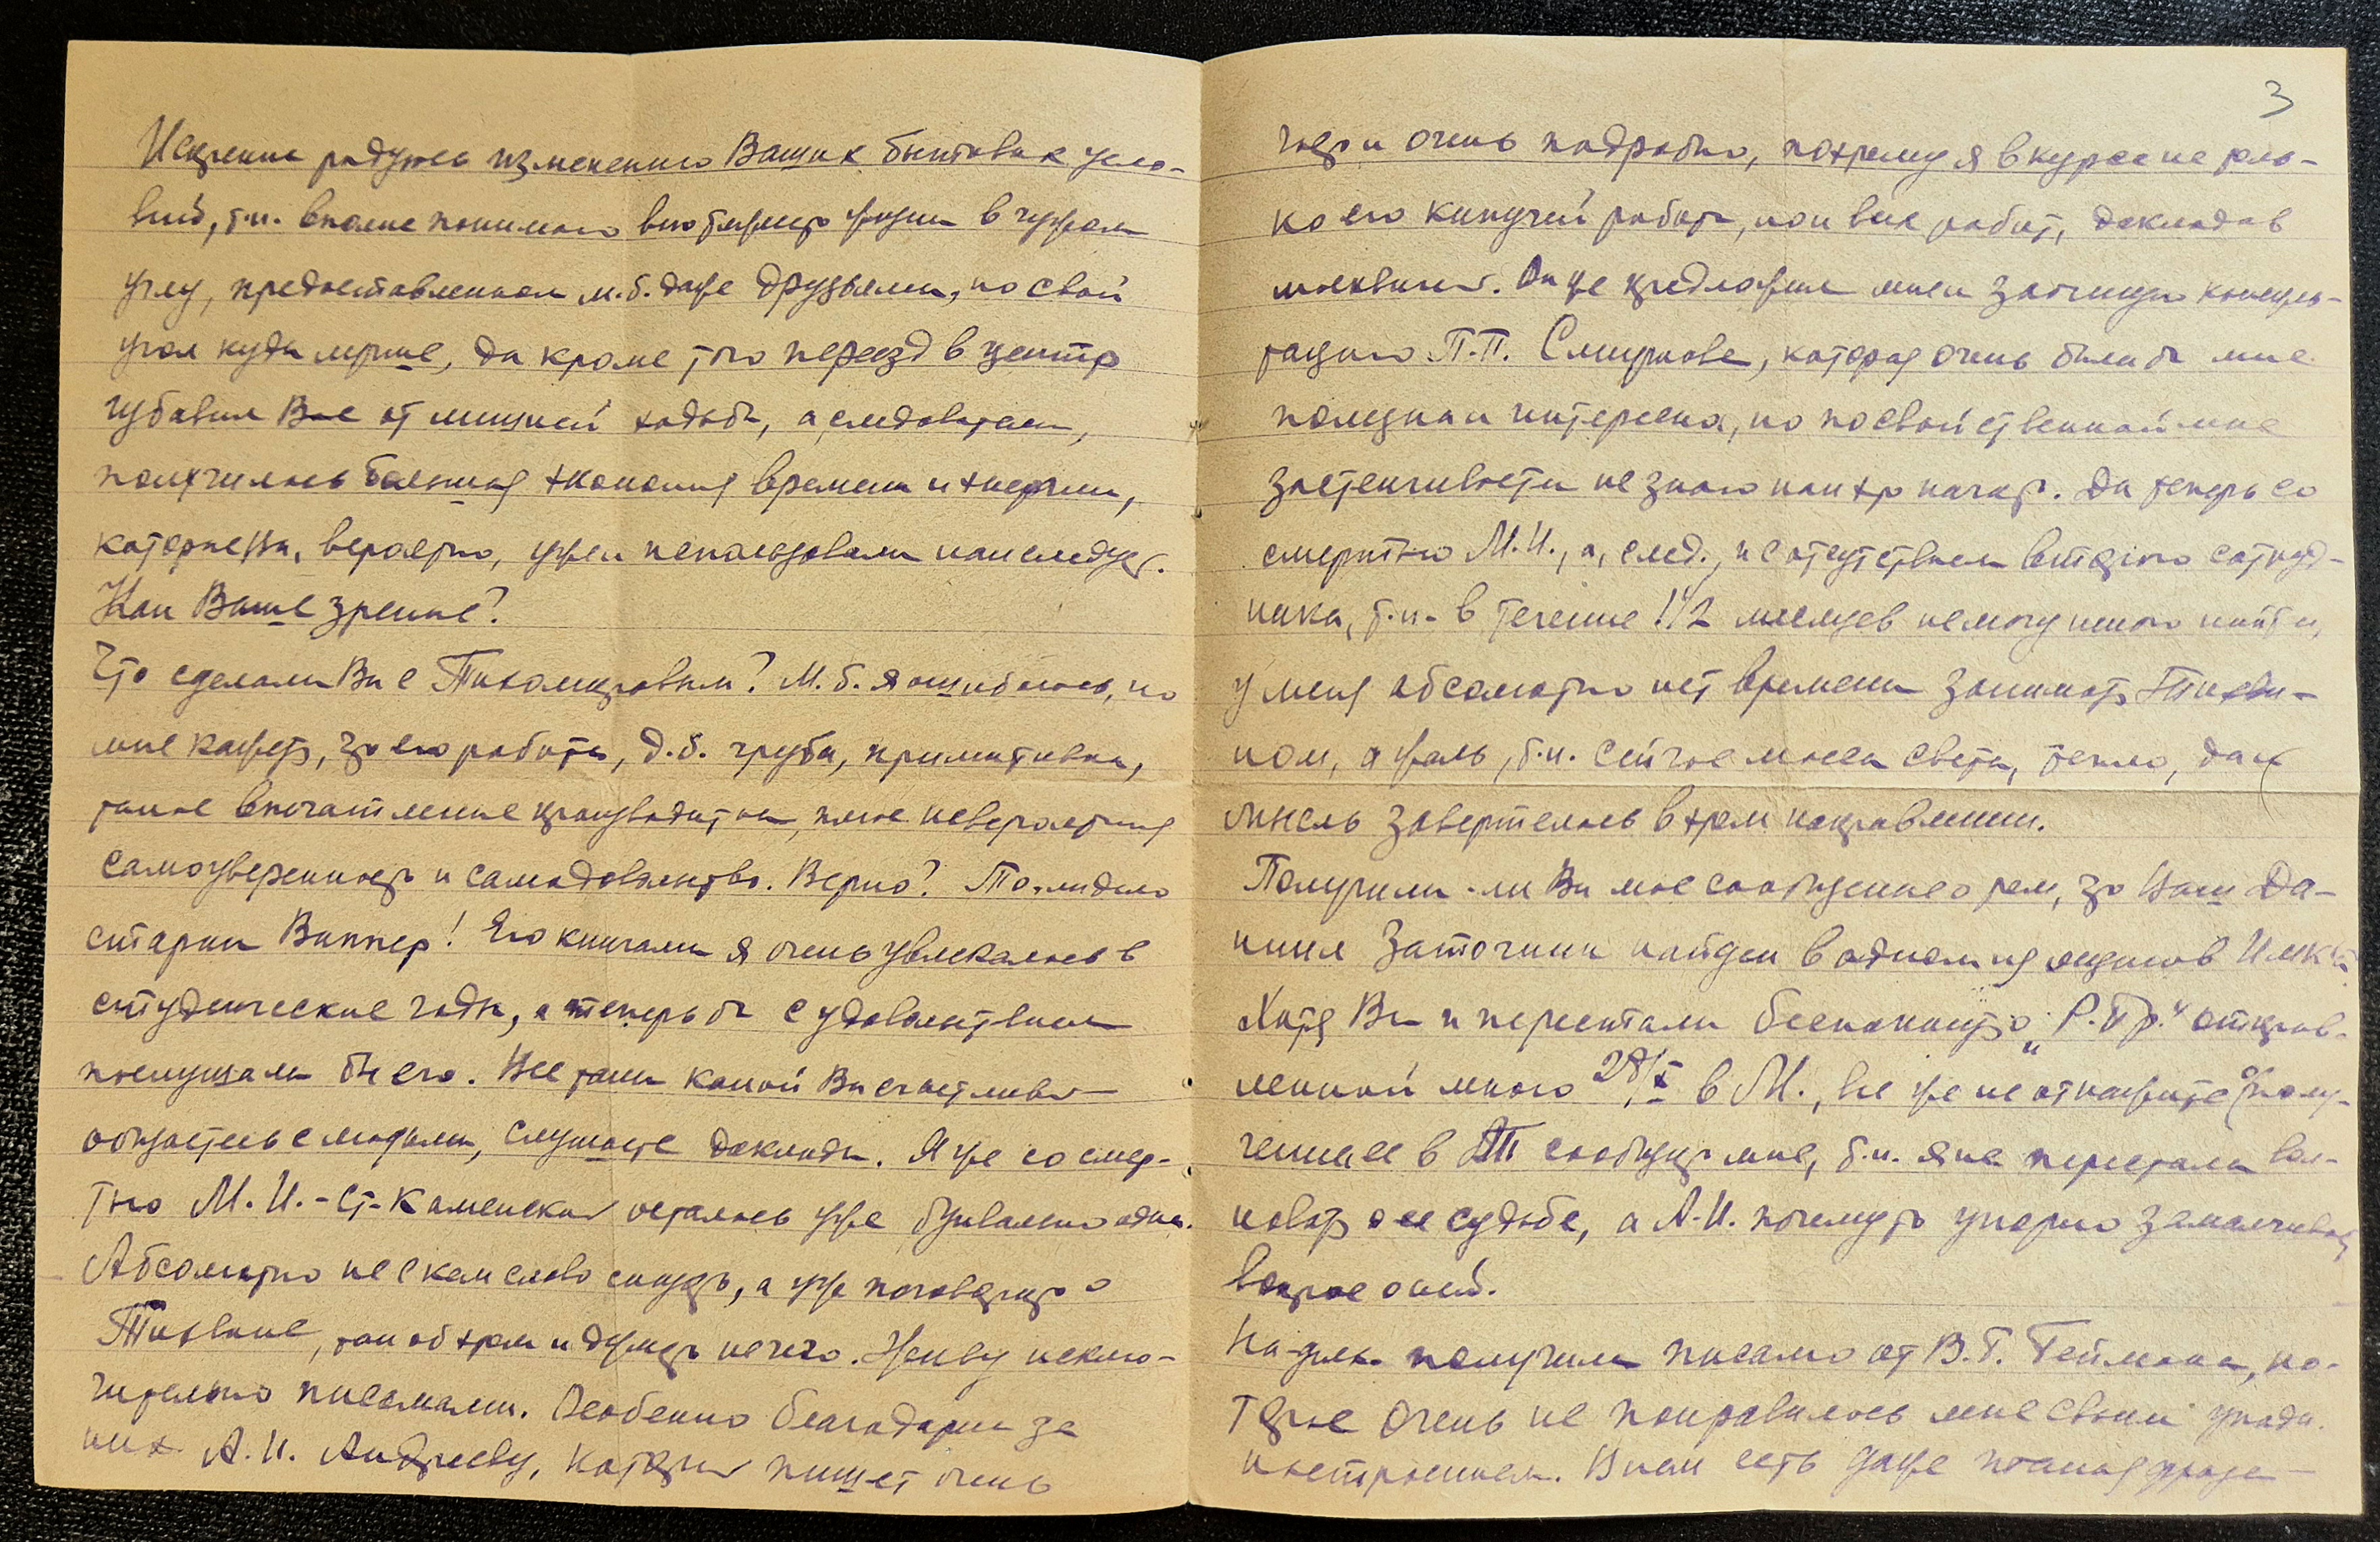 Искренне радуюсь изменению Ваших бытовых усло-
вий, т.к. вполне понимаю всю тяжесть жизни в чужом
углу, предоставленном м.б. даже друзьями, но свой
угол куда лучше, да кроме того переезд в центр
избавил Вас от лишней ходьбы, а следовательно,
получилась большая экономия времени и энергии,
которые Вы, вероятно, уже использовали как следует.
Как Ваше зрение?
Что сделали Вы с Тихомировым? М.б. я ошибаюсь, но
мне кажется, что его работы, д.б. грубы, примитивны,
такое впечатление производит он, плюс невероятная
самоуверенность и самодовольство. Верно? То ли дело
старик Виппер! Его книгами я очень увлекалась в
студенческие годы, а теперь бы с удовольствием
послушала бы его. Все таки какой Вы счастливый
общаетесь с людьми, слушаете доклады. Я же со смер-
тью М.И.-Ст-Каменской осталась уже буквально одна.
Абсолютно не с кем слово сказать, а уже поговорить о
Тихвине, так об этом и думать нечего. Живу исклю-
чительно письмами. Особенно благодарна за
них А.И. Андрееву, который пишет очень
3
часто и очень подробно, поэтому я в курсе не толь-
ко его кипучей работы, но и всех работ, докладов
москвичей. Он же предложил мне заочную консуль-
тацию П.П. Смирнова, которая очень была бы мне
полезна и интересна, но по свойственной мне
застенчивости не знаю как это начать. Да теперь со
смертью М.И., а, след., и с отсутствием второго сотруд-
ника, т.к. в течение 1 1/2 месяцев не могу никого найти,
у меня абсолютно нет времени заниматься Тихви-
ном, а жаль, т.к. сейчас масса света, тепло, да и
мысль завертелась в этом направлении.
Получили-ли Вы мое сообщение о том, что Ваш Да-
ниил Заточник найден в одном из ящиков
Хотя Вы и перестали беспокоиться о „Р.Пр." отправ-
ленной мною 28/X в М., все же не откажите о полу-
чении ее в сообщить мне, т.к. я не перестала вол-
новаться о ее судьбе, а А.И. почему то упорно замалчивает
вопрос о ней.
На-днях получила письмо от В.Г. Геймана, ко-
торое очень не понравилось мне своим упадн.
настроением. В нем есть даже такая фраза—